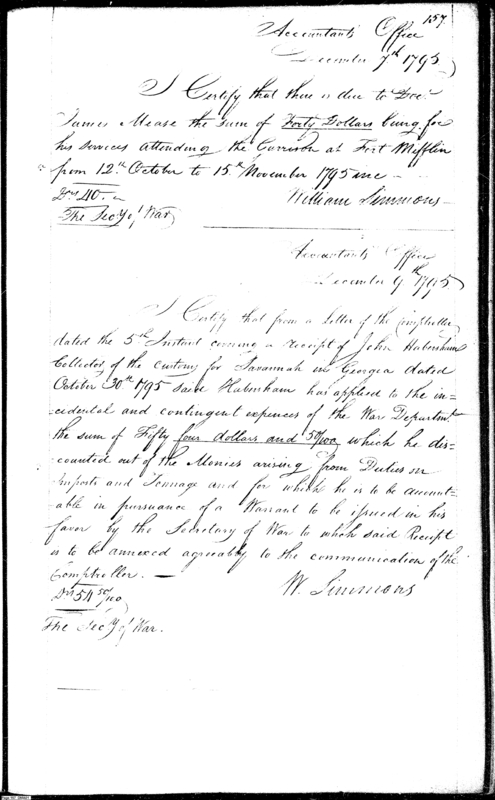 157
Accountants Office
December 7th 1795
I Certify that there is due to Doc.r
James Mease the Sum of Forty Dollars being for
his Services attending the Garrison at Fort Mifflin
from 12th October to 15th November 1795 inc—
Drs 40.—
William Simmons—
The Secy of War
Accountants Office
December 9th 1795
I Certify that from a Letter of the Comptroller
dated the 5th Instant covering a receipt of John Habersham
Collector of the customs for Savannah in Georgia dated
October 30th 1795 said Habersham has applied to the in-
cidental and contingent expences of the War Departmt.
the sum of Fifty four dollars and 50/100 which he dis-
counted out of the Monies arising from Duties on
Imports and Tonnage and for which he is to be account-
able in pursuance of a Warrant to be issued in his
favor by the Secretary of War to which said Receipt
is to be annexed agreeably to the communication of the
Comptroller.—
Drs 54 50/100
W. Simmons
The Secy of War.